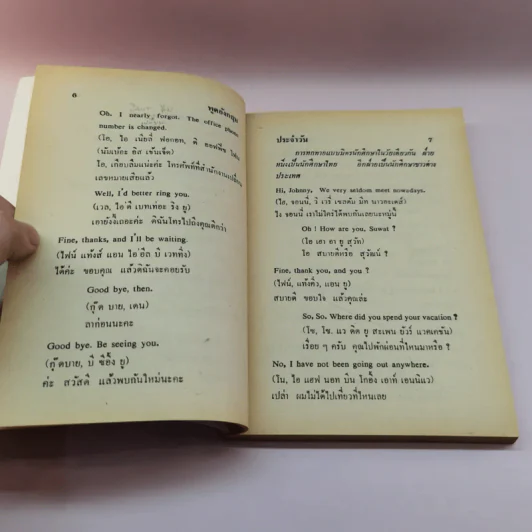 ๖
พูดอังกฤษ
Oh, I nearly forgot. The office phone
number is changed.
(โอ, ไอ เนียลี่ ฟอกอท, ดิ ออฟฟิซ โฟน
(นัมเบ้อะ อิส เช้นเจ็ด)
เลขหมายเสียแล้ว
Well, I'd better ring you.
(เวล, ไอ'ดี เบทเท่อะ ริง ยู)
Fine, thanks, and I'll be waiting.
(ไฟน์ แท้งส์ แอน ไอ'ฮีล บี เวทที่ง)
ได้ค่ะ ขอบคุณ แล้วดิฉันจะคอยรับ
Good bye, then.
(กู๊ด บาย, เดน)
ลาก่อนนะคะ
Good bye. Be seeing you.
(กู๊ดบาย, บี ซีอิ้ง ยู)
ค่ะ สวัสดี แล้วพบกันใหม่นะคะ
ประจำวัน
๗
การทักทายแบบมิตรนักศึกษาในวัยเดียวกัน ฝ่าย
หนึ่งเป็นนักศึกษาไทย อีกฝ่ายเป็นนักศึกษาชาวต่าง
ประเทศ
Hi, Johnny, We very seldom meet nowadays.
(ไฮ, จอนนี่, วี เวรี่ เซลดัม มีท นาวอะเดส์)
ไง จอนนี่ เราไม่ใคร่ได้พบกันเลยนะหมู่นี้
Oh ! How are you, Sowat ?
(โอ เฮา อา ยู สุวัท)
โอ สบายดีหรือ สุวัฒน์ ?
Fine, thank you, and you ?
(ไฟน์, แท้งคิ่ว, แอน ยู)
สบายดี ขอบใจ แล้วคุณล่ะ
So, So, Where did you spend your vacation ?
(โซ, โซ, แว ดิด ยู สะเพน ยัวร์ แวคเคชัน)
เรื่อย ๆ ครับ คุณไปพักผ่อนที่ไหนมาหรือ ?
No, I have not been going out anywhere.
(โน, ไอ แฮฟ นอท บิน โกอิ้ง เอาท์ เอนนิแว)
เปล่า ผมไม่ได้ไปเที่ยวที่ไหนเลย